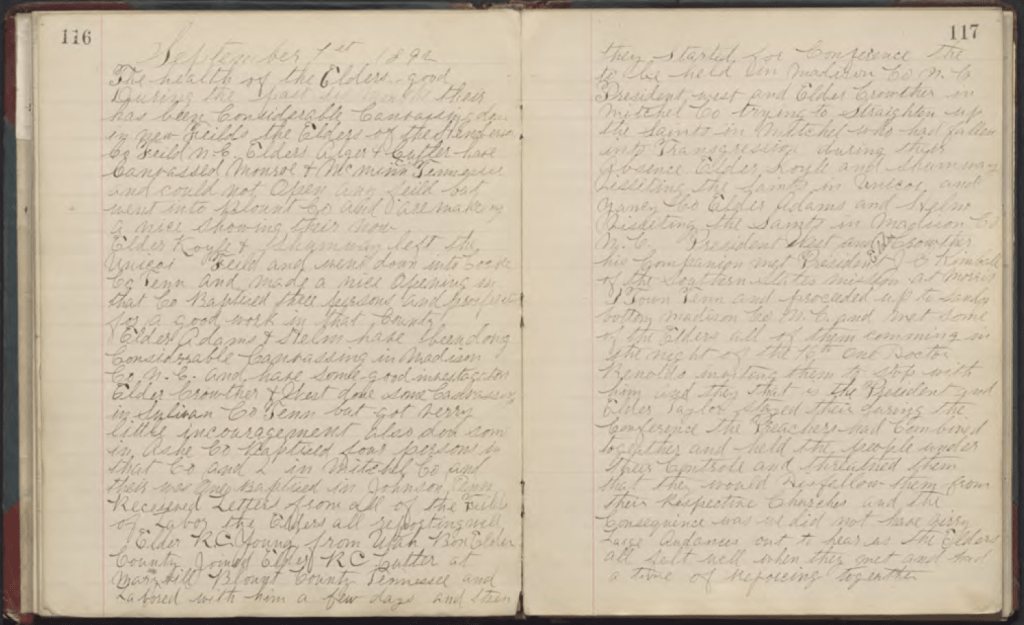 116
September 1st 1892
The health of the Elders good
During the past six months their
has been Considerable Canvassing done
in new Feilds the Elders of the
Co Feild N.C. Elders Alger & Cutler have
Canvassed Monroe & McMenn Tennessee
and could not Open any feild but
went into Blount Co and are making
a nice showing their now
Elder Koyle & Shumway left the
Unicoi Feild and went down into Cocke
Co Tenn and made a nice Opening in
that Co Baptised three persons and prospects
for a good work in that County
Elder Adams & Helm have been doing
Considerable Canvassing in Madison
Co. N.C. and have some good investagators
Elder Crowther & West done some Canvassing
in Sulivan Co Tenn but got verry
little incouragement also don som
in Ashe Co Baptised four persons in
that Co and 2 in Mitchel Co and
their was One Baptised in Johnson Tenn
Received Letters from all of the Feilds
of Labor the Elders all reporting well
Elder R.C. Young from Utah Box Elder
County Joined Elder R C Cutler at
Mary Hill Blount County Tennessee and
Labored with him a few days and then
117
they Started for Conference the
to be held in Madison Co N.C.
President west and Elder Crowther in
Mitchel Co trying to Straighten up
the Saints in Mitchel who had fallen
into Transgression during their
absence Elder Koyle and Shumway
vissiting the Saints in Unicoi and
Yancy Co Elder Adams and Helm
Vissiting the Saints in Madison Co
N.C. President West and Elder Crowther
his Companion met President J G Kimball
of the Southern States mission at Morris
Town Tenn and proceeded up to Sandy
bottom Madison Co N.C. and met some
of the Elders all of them comming in
the night of the 16th One Doctor
Renolds inviting them to stop with
him and they that is the President and
Elder Taylor stayed their during the
Conference the Preachers had Combined
together and held the people under
their Controle and thretened them
that they would disfellow them from
their Respective Churches and the
Consequince was we did not have verry
Large Audances out to hear us the Elders
all felt well when they met and had
a time of rejoicing together